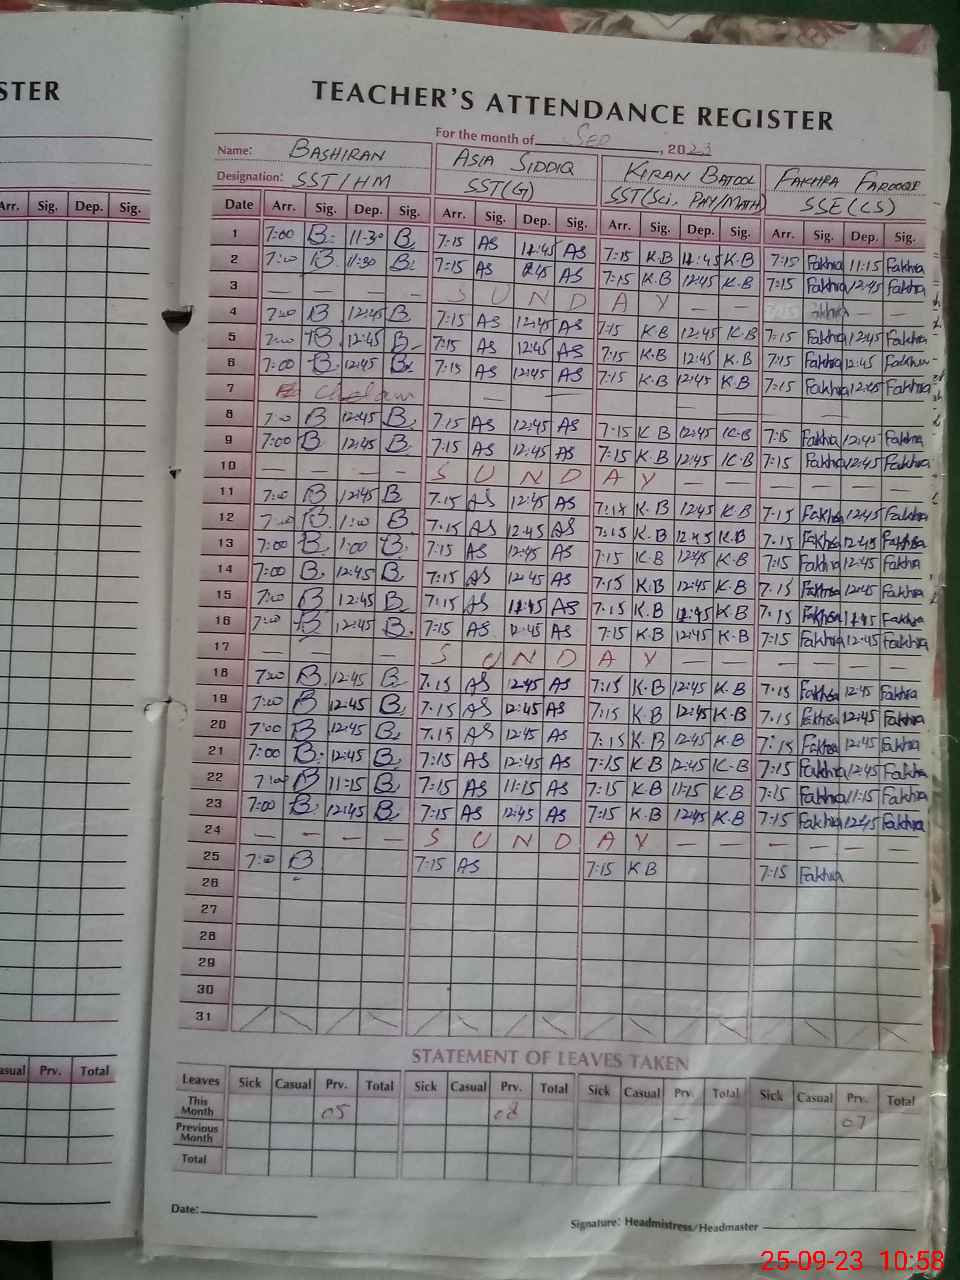 STER
TEACHER'S ATTENDANCE REGISTER
For the month of Sep, 2023
Name: BASHIRAN ASIA SIDDIQ KIRAN BATOOL FAKHRA FAROOQ
Designation: SST/HM SST(G) SST(Sci, PHY/MATH) SSE(CS)
Arr. Sig. Dep. Sig. Date Arr. Sig. Dep. Sig. Arr. Sig. Dep. Sig. Arr. Sig. Dep. Sig. Arr. Sig. Dep. Sig.
1 7:00 B. 11:30 B 7:15 AS 12:45 AS 7:15 K.B 12:45 K.B 7:15 Fakhra 11:15 Fakhra
2 7:00 B. 11:30 B. 7:15 AS 12:45 AS 7:15 K.B 12:45 K.B 7:15 Fakhra 12:45 Fakhra
3 — — — — S U N D A Y — — Fakhra — —
4 7:00 B 12:45 B 7:15 AS 12:45 AS 7:15 K.B 12:45 K.B 7:15 Fakhra 12:45 Fakhra
5 7:00 B. 12:45 B 7:15 AS 12:45 AS 7:15 K.B 12:45 K.B 7:15 Fakhra 12:45 Fakhra
6 7:00 B. 12:45 B. 7:15 AS 12:45 AS 7:15 K.B 12:45 K.B 7:15 Fakhra 12:45 Fakhra
7 — — — —
8 7:00 B 12:45 B 7:15 AS 12:45 AS 7:15 K B 12:45 K.B 7:15 Fakhra 12:45 Fakhra
9 7:00 B 12:45 B 7:15 AS 12:45 AS 7:15 K.B 12:45 K.B 7:15 Fakhra 12:45 Fakhra
10 — — — — S U N D A Y — — — — — —
11 7:00 B 12:45 B 7:15 AS 12:45 AS 7:15 K.B 12:45 K.B 7:15 Fakhra 12:45 Fakhra
12 7:00 B. 1:00 B 7:15 AS 12:45 AS 7:15 K.B 12:45 K.B 7:15 Fakhra 12:45 Fakhra
13 7:00 B. 1:00 B. 7:15 AS 12:45 AS 7:15 K.B 12:45 K.B 7:15 Fakhra 12:45 Fakhra
14 7:00 B. 12:45 B 7:15 AS 12:45 AS 7:15 K.B 12:45 K.B 7:15 Fakhra 12:45 Fakhra
15 7:00 B 12:45 B 7:15 AS 12:45 AS 7:15 K.B 12:45 K.B 7:15 Fakhra 12:45 Fakhra
16 7:00 B 12:45 B. 7:15 AS 12:45 AS 7:15 K.B 12:45 K.B 7:15 Fakhra 12:45 Fakhra
17 — — — S U N D A Y — — — — — —
18 7:00 B. 12:45 B 7:15 AS 12:45 AS 7:15 K.B 12:45 K.B 7:15 Fakhra 12:45 Fakhra
19 7:00 B 12:45 B 7:15 AS 12:45 AS 7:15 K.B 12:45 K.B 7:15 Fakhra 12:45 Fakhra
20 7:00 B 12:45 B 7:15 AS 12:45 AS 7:15 K.B 12:45 K.B 7:15 Fakhra 12:45 Fakhra
21 7:00 B. 12:45 B 7:15 AS 12:45 AS 7:15 K.B 12:45 K.B 7:15 Fakhra 12:45 Fakhra
22 7:00 B 11:15 B 7:15 AS 11:15 AS 7:15 K.B 11:15 K.B 7:15 Fakhra 11:15 Fakhra
23 7:00 B. 12:45 B 7:15 AS 12:45 AS 7:15 K.B 12:45 K.B 7:15 Fakhra 12:45 Fakhra
24 — — — — S U N D A Y — — — — — —
25 7:00 B 7:15 AS 7:15 K B 7:15 Fakhra
26
27
28
29
30
31
STATEMENT OF LEAVES TAKEN
asual Prv. Total Leaves Sick Casual Prv. Total Sick Casual Prv. Total Sick Casual Prv. Total Sick Casual Prv. Total
This Month 05 08 — 07
Previous Month
Total
Date:
Signature: Headmistress/Headmaster
25-09-23 10:58